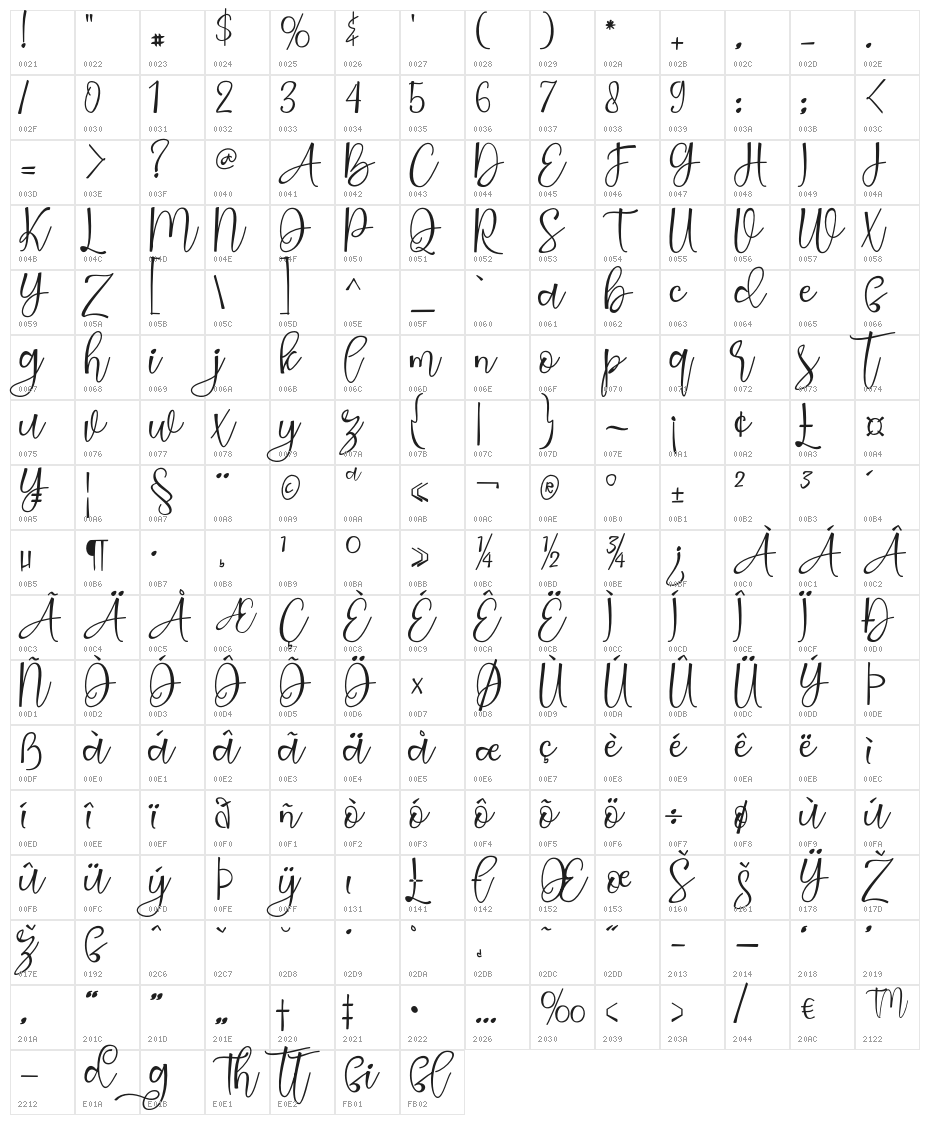 ! " # $ % & ' ( ) * + , - .
0021 0022 0023 0024 0025 0026 0027 0028 0029 002A 002B 002C 002D 002E
/ 0 1 2 3 4 5 6 7 8 9 : ; <
002F 0030 0031 0032 0033 0034 0035 0036 0037 0038 0039 003A 003B 003C
= > ? @ A B C D E F G H I J
003D 003E 003F 0040 0041 0042 0043 0044 0045 0046 0047 0048 0049 004A
K L M N O P Q R S T U V W X
004B 004C 004D 004E 004F 0050 0051 0052 0053 0054 0055 0056 0057 0058
Y Z [ \ ] ^ _ ` a b c d e f
0059 005A 005B 005C 005D 005E 005F 0060 0061 0062 0063 0064 0065 0066
g h i j k l m n o p q r s t
0067 0068 0069 006A 006B 006C 006D 006E 006F 0070 0071 0072 0073 0074
u v w x y z { | } ~ ¡ ¢ £ ¤
0075 0076 0077 0078 0079 007A 007B 007C 007D 007E 00A1 00A2 00A3 00A4
¥ ¦ § ¨ © ª « ¬ ® ° ± ² ³ ´
00A5 00A6 00A7 00A8 00A9 00AA 00AB 00AC 00AE 00B0 00B1 00B2 00B3 00B4
µ ¶ · ¸ ¹ º » ¼ ½ ¾ ¿ À Á Â
00B5 00B6 00B7 00B8 00B9 00BA 00BB 00BC 00BD 00BE 00BF 00C0 00C1 00C2
Ã Ä Å Æ Ç È É Ê Ë Ì Í Î Ï Ð
00C3 00C4 00C5 00C6 00C7 00C8 00C9 00CA 00CB 00CC 00CD 00CE 00CF 00D0
Ñ Ò Ó Ô Õ Ö × Ø Ù Ú Û Ü Ý Þ
00D1 00D2 00D3 00D4 00D5 00D6 00D7 00D8 00D9 00DA 00DB 00DC 00DD 00DE
ß à á â ã ä å æ ç è é ê ë ì
00DF 00E0 00E1 00E2 00E3 00E4 00E5 00E6 00E7 00E8 00E9 00EA 00EB 00EC
í î ï ð ñ ò ó ô õ ö ÷ ø ù ú
00ED 00EE 00EF 00F0 00F1 00F2 00F3 00F4 00F5 00F6 00F7 00F8 00F9 00FA
û ü ý þ ÿ ı Ł ł Œ œ Š š Ÿ Ž
00FB 00FC 00FD 00FE 00FF 0131 0141 0142 0152 0153 0160 0161 0178 017D
ž ƒ ˆ ˇ ˘ ˙ ˚ ˛ ˜ ˝ – — ‘ ’
017E 0192 02C6 02C7 02D8 02D9 02DA 02DB 02DC 02DD 2013 2014 2018 2019
‚ “ ” „ † ‡ • … ‰ ‹ › ⁄ € ™
201A 201C 201D 201E 2020 2021 2022 2026 2030 2039 203A 2044 20AC 2122
− d g Th tt fi fl
2212 E01A E01B E0E1 E0E2 FB01 FB02